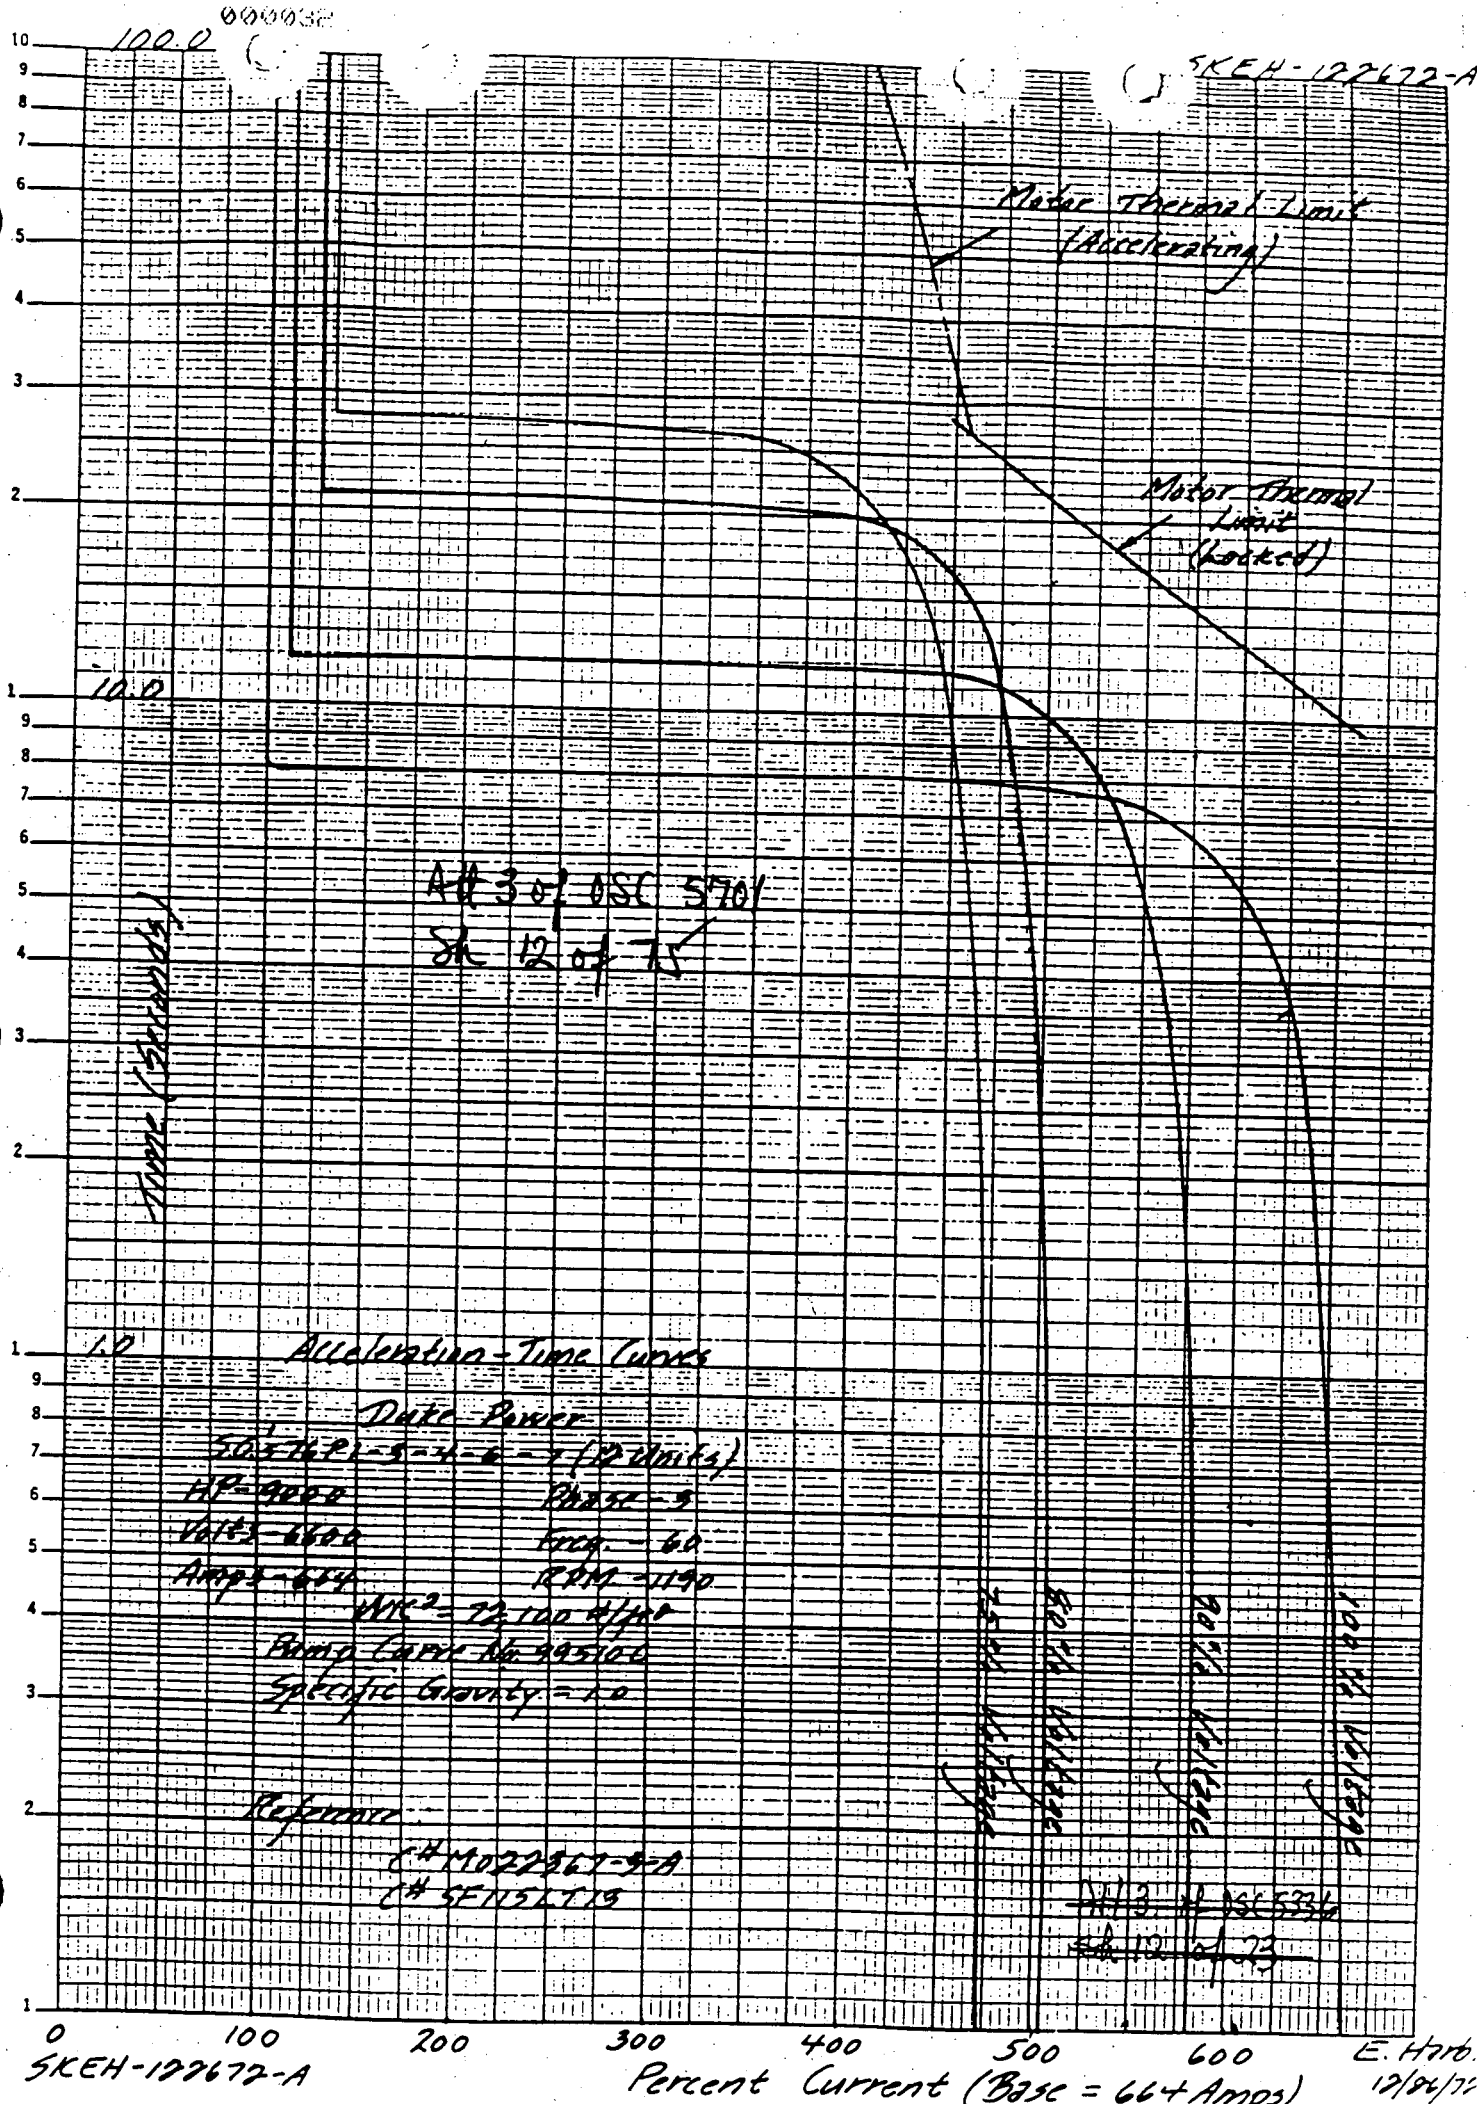 000032
100.0
SKEH-122672-A
10
9
8
7
6
5
4
3
2
1
9
8
7
6
5
4
3
2
1
9
8
7
6
5
4
3
2
1
Motor Thermal Limit
(Accelerating)
Motor Thermal
Limit
(Locked)
10.0
Att 3 of OSC 5701
Sh 12 of 75
Time (Seconds)
1.0
Acceleration-Time Curves
Duke Power
(12 Units)
HP-9000
Phase-3
Volts-6600
Freq.-60
Amps-664
RPM-1190
WK²= 72,100
Pump Curve No.
Specific Gravity = 1.0
Reference
75% Voltage
80% Voltage
90% Voltage
100% Voltage
Att 3 of OSC5336
Sh 12 of 23
0
100
200
300
400
500
600
SKEH-122672-A
Percent Current (Base = 664 Amps)
E. Harb.
12/26/72